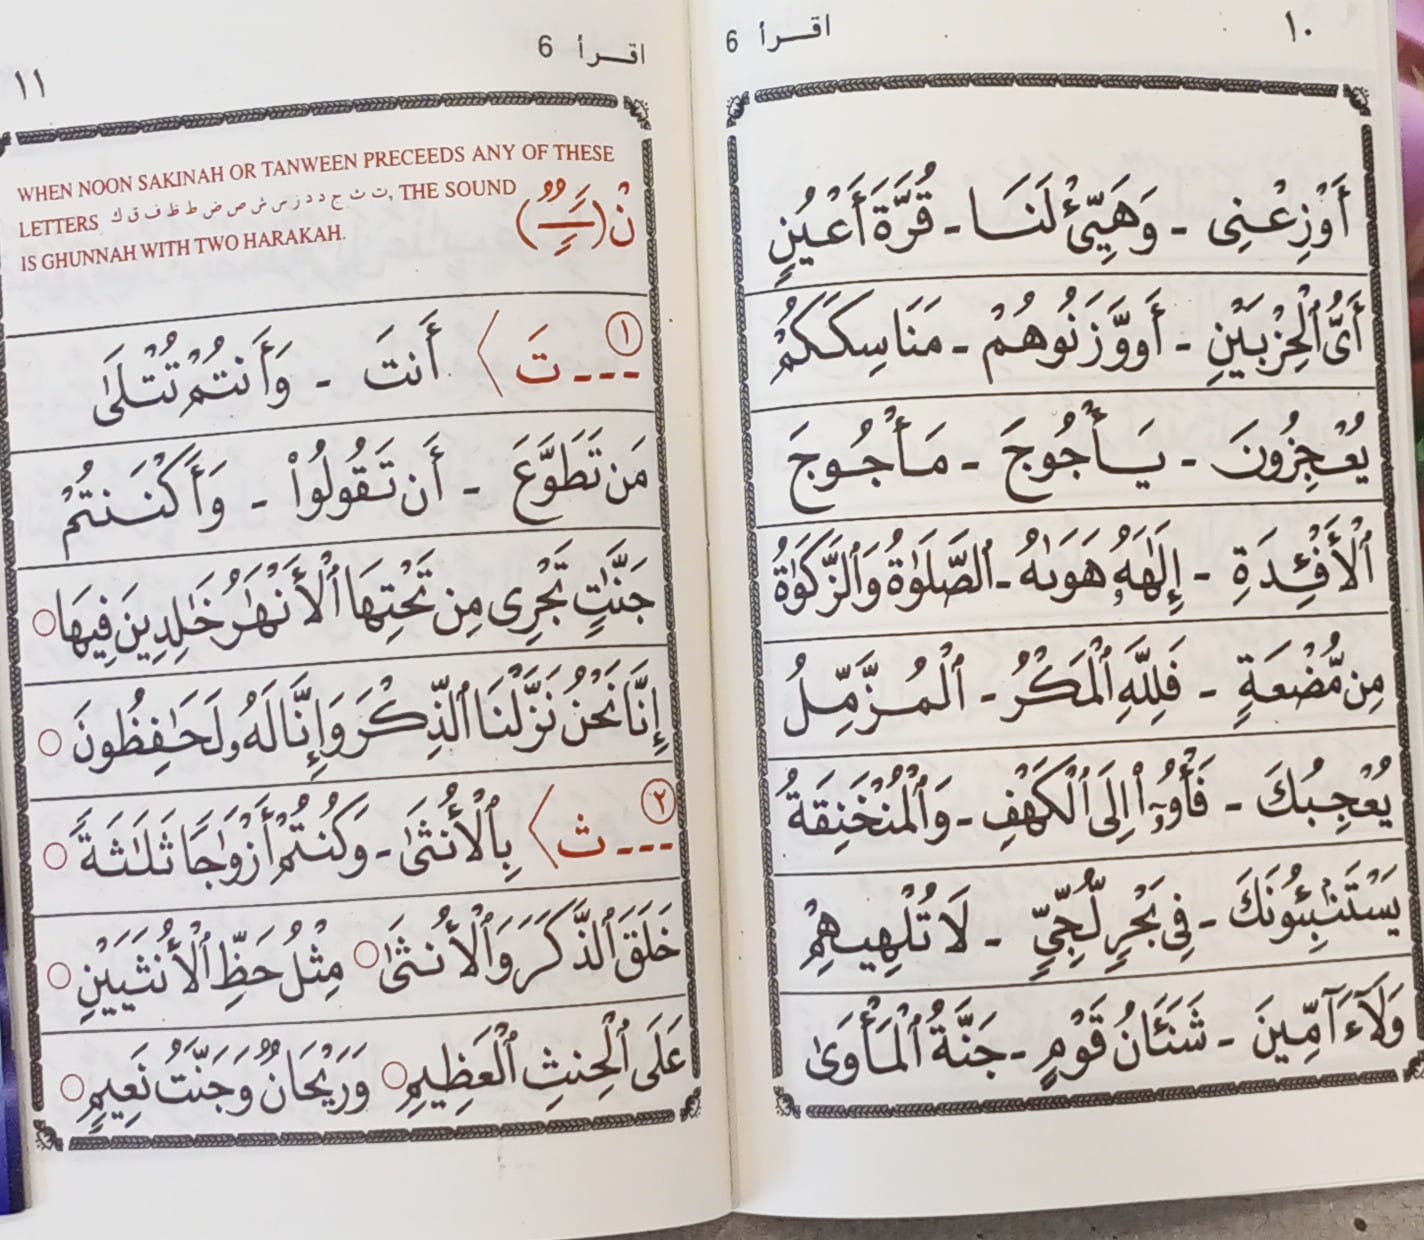 ١٠
اقرأ 6
أَوْزِعْنِى - وَهَيِّئْ لَنَا - قُرَّةَ أَعْيُنٍ
أَىُّ ٱلْحِزْبَيْنِ - أَووَّزَنُوهُمْ - مَنَاسِكَكُمْ
يُعْجِزُونَ - يَأْجُوجَ - مَأْجُوجَ
ٱلْأَفْـِٔدَةِ - إِلَٰهَهُۥ هَوَىٰهُ - ٱلصَّلَوٰةُ وَٱلزَّكَوٰةُ
مِن مُّضْغَةٍ - فَلِلَّهِ ٱلْمَكْرُ - ٱلْمُزَّمِّلُ
يُعْجِبُكَ - فَأْوُۥٓا۟ إِلَى ٱلْكَهْفِ - وَٱلْمُنْخَنِقَةُ
يَسْتَنۢبِـُٔونَكَ - فِى بَحْرٍ لُّجِّىٍّ - لَا تُلْهِيهِمْ
وَلَآ ءَآمِّينَ - شَنَـَٔانُ قَوْمٍ - جَنَّةُ ٱلْمَأْوَىٰ
اقرأ 6
١١
WHEN NOON SAKINAH OR TANWEEN PRECEEDS ANY OF THESE
LETTERS ت ث ج د ذ ز س ش ص ض ط ظ ف ق ك, THE SOUND
IS GHUNNAH WITH TWO HARAKAH.
نْ (ـًـٍـٌ)
١ --- تَ ⟩ أَنتَ - وَأَنتُمْ تُتْلَىٰ
مَن تَطَوَّعَ - أَن تَقُولُوا۟ - وَأَكْنَنتُمْ
جَنَّٰتٍ تَجْرِى مِن تَحْتِهَا ٱلْأَنْهَٰرُ خَٰلِدِينَ فِيهَا ○
إِنَّا نَحْنُ نَزَّلْنَا ٱلذِّكْرَ وَإِنَّا لَهُۥ لَحَٰفِظُونَ ○
٢ --- ث ⟩ بِٱلْأُنثَىٰ - وَكُنتُمْ أَزْوَٰجًا ثَلَٰثَةً ○
خَلَقَ ٱلذَّكَرَ وَٱلْأُنثَىٰ ○ مِثْلُ حَظِّ ٱلْأُنثَيَيْنِ ○
عَلَى ٱلْحِنثِ ٱلْعَظِيمِ ○ وَرَيْحَانٌ وَجَنَّتُ نَعِيمٍ ○